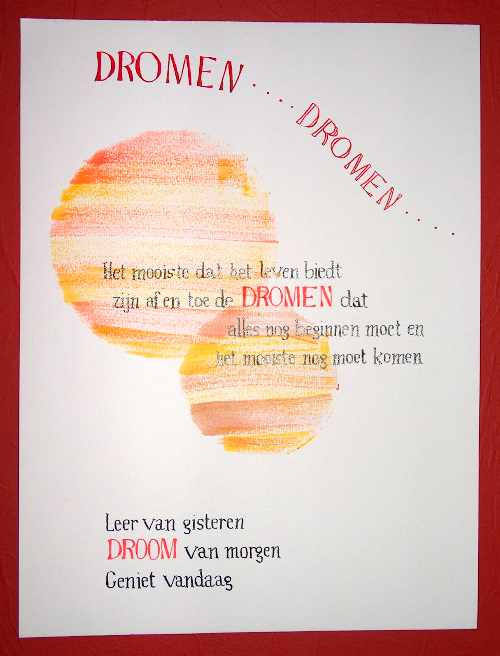 DROMEN ....
DROMEN ....
Het mooiste dat het leven biedt
zijn af en toe de DROMEN dat
alles nog beginnen moet en
het mooiste nog moet komen
Leer van gisteren
DROOM van morgen
Geniet vandaag